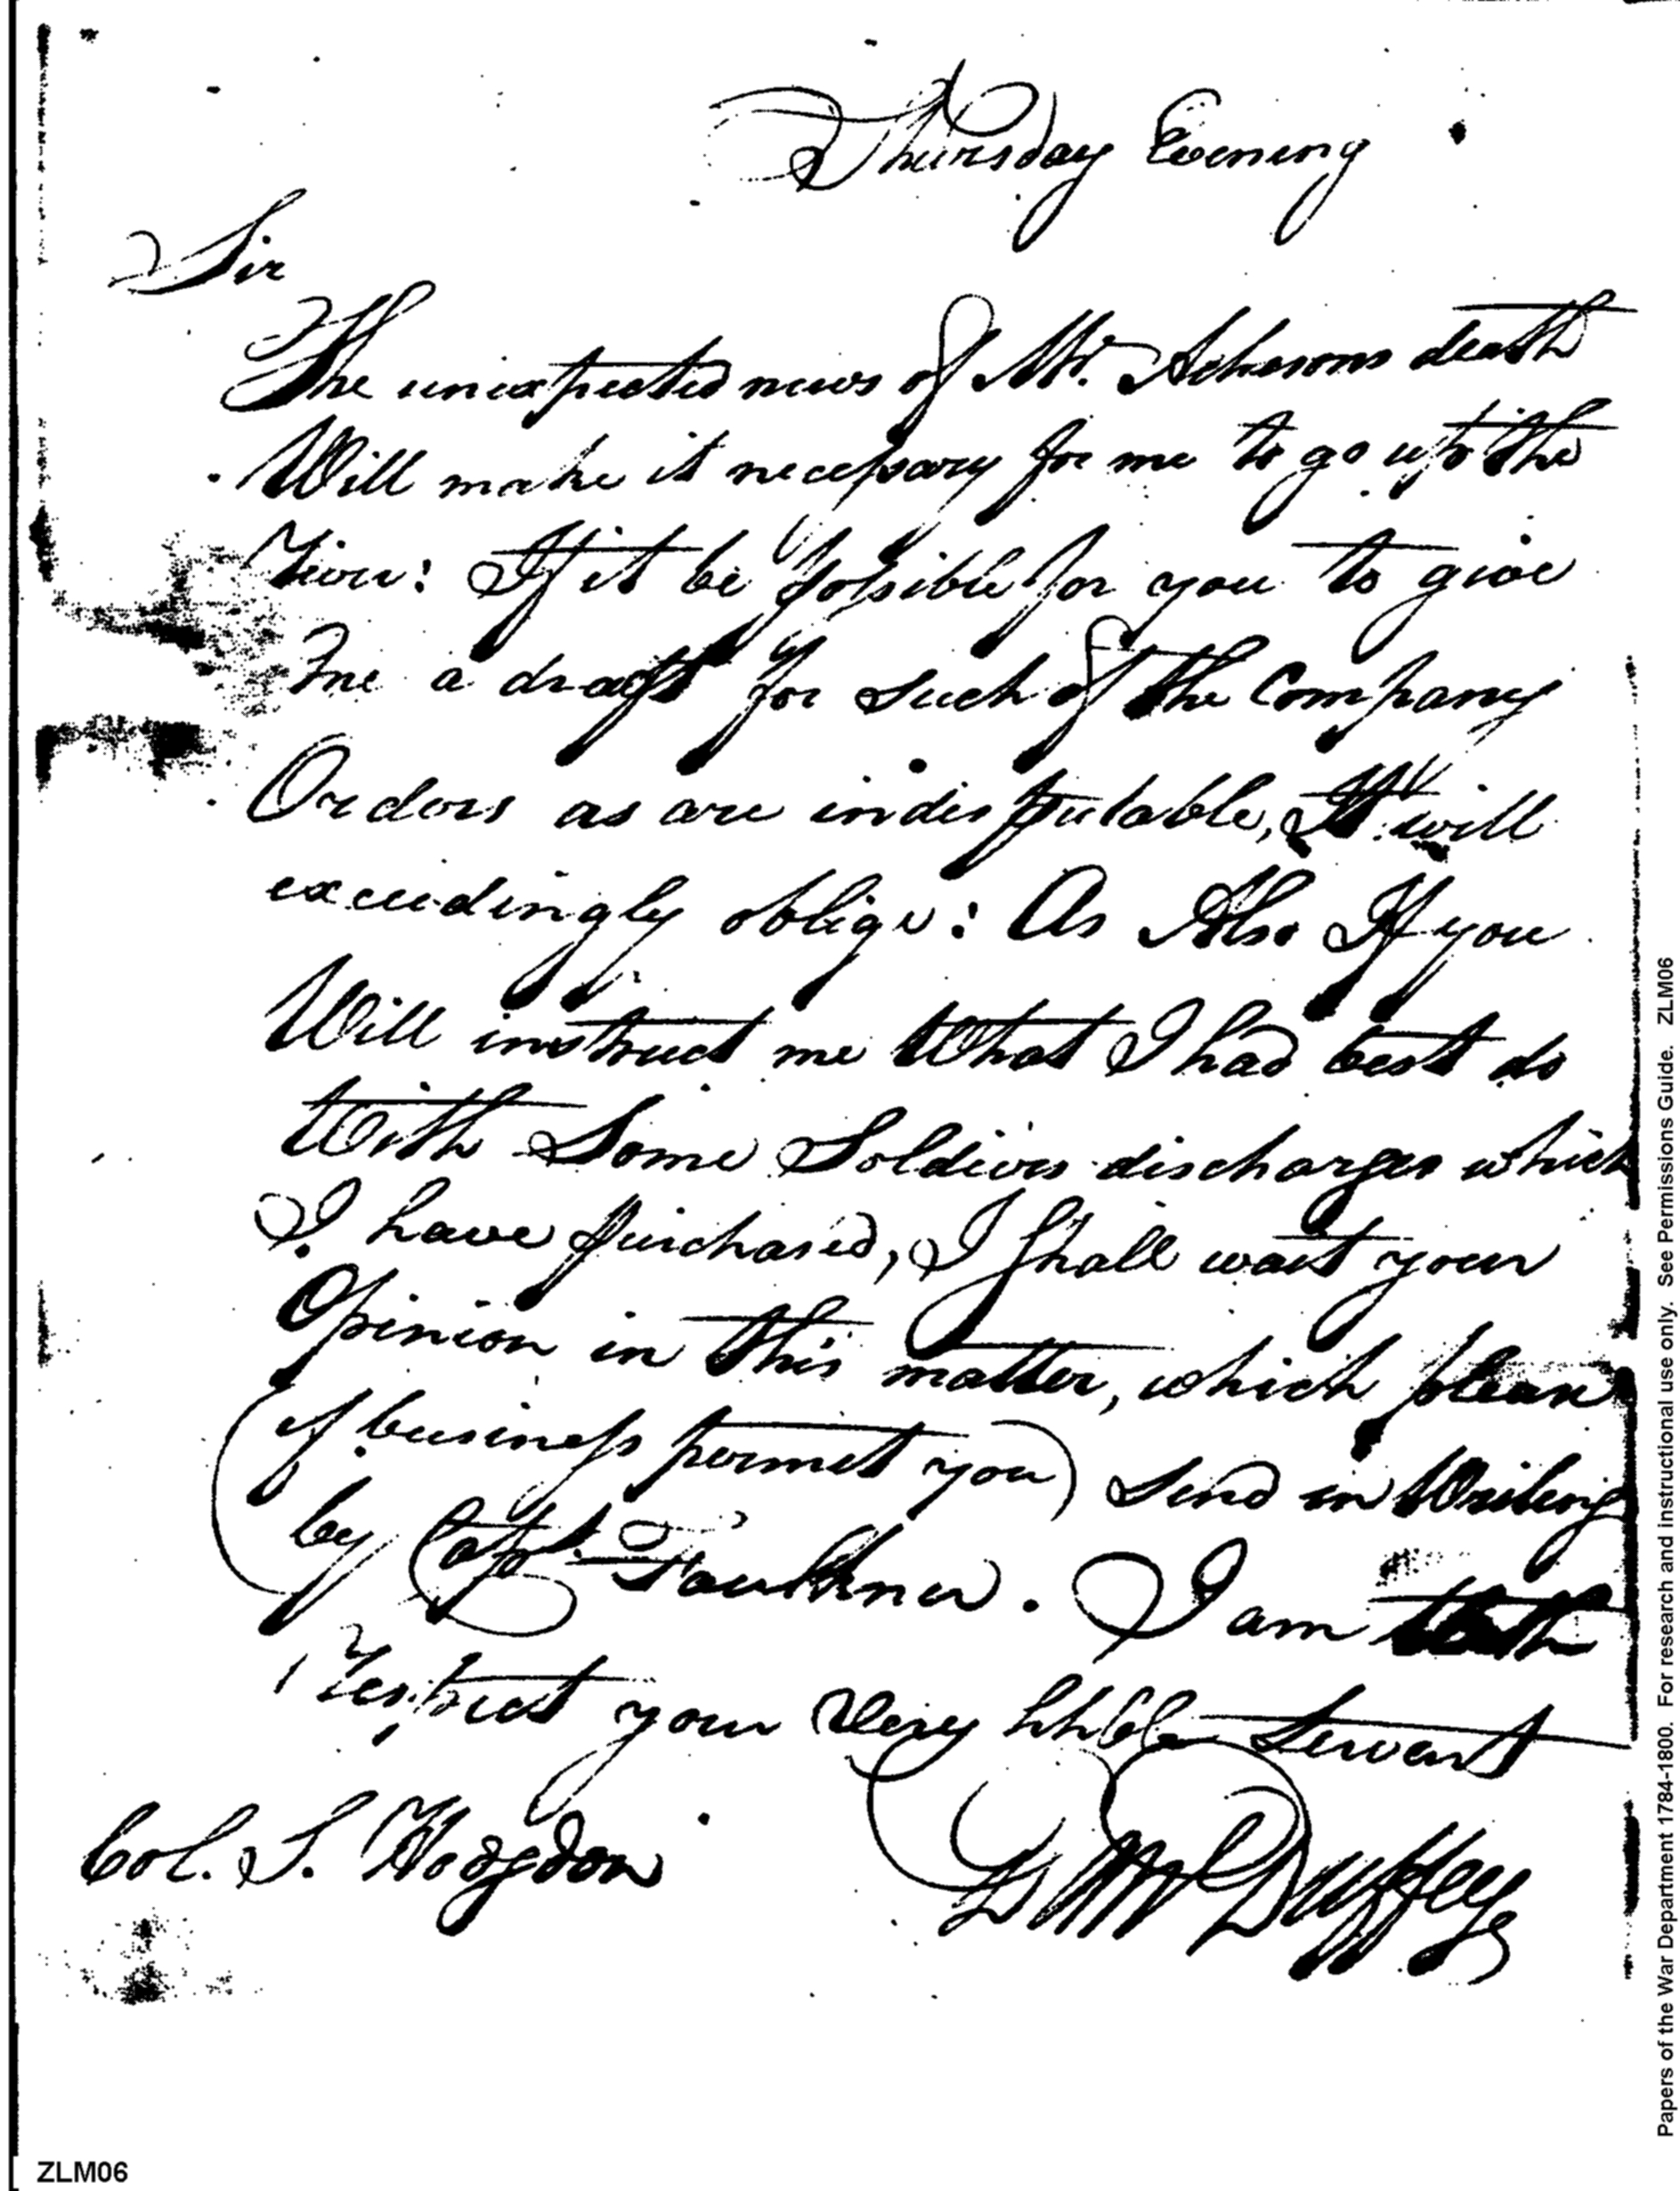 Thursday Evening
Sir
The unexpected news of Mr. Achesons death
Will make it necessary for me to go up the
River: If it be possible for you to give
me a draft for such of the Company
Orders as are indisputable, It will
exceedingly oblige: As Also If you
Will instruct me What I had best do
With Some Soldiers discharges which
I have purchased, I shall wait your
Opinion in this matter, which please
(if business permit you) send in Writing
by Capt. Faulkner. I am With
Respect your Very hhble Servant
D McDuffey
Col. S. Hogdon
ZLM06
Papers of the War Department 1784-1800. For research and instructional use only. See Permissions Guide. ZLM06